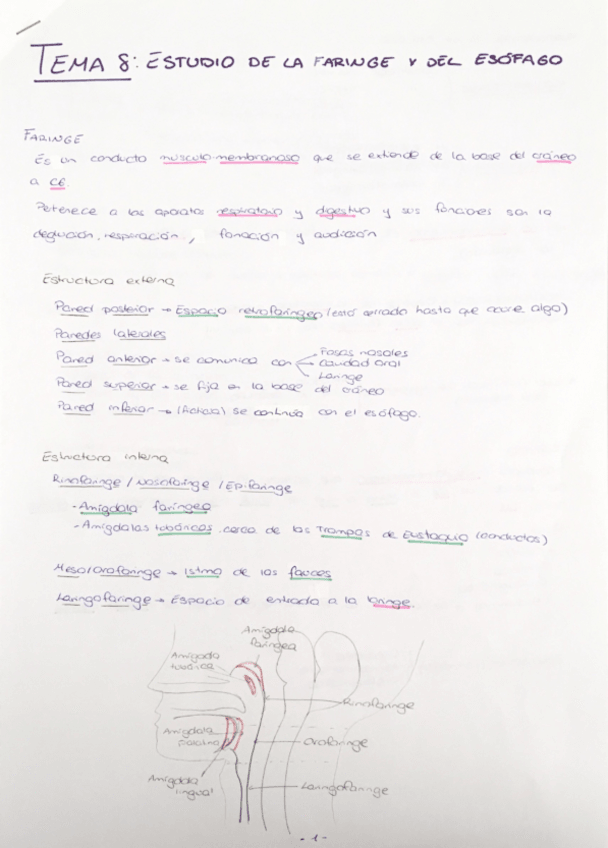 TEMA 8: ESTUDIO DE LA FARINGE Y DEL ESÓFAGO
FARINGE
Es un conducto musculo-membranoso que se extiende de la base del cráneo
a C6.
Petenece a los aparatos respiratorio y digestivo y sus funciones son la
deglución, respiración, fonación y audición
Estructura externa
Pared posterior → Espacio retrofaríngeo (está cerrado hasta que ocurre algo)
Paredes laterales
Pared anterior → se comunica con
Fosas nasales
cavidad oral
Laringe
Pared superior → se fija en la base del cráneo
Pared inferior → (ficticia) se continúa con el esófago.
Estructura interna
Rinofaringe / Nasofaringe / Epifaringe
- Amígdala faríngea
- Amígdalas tubáricas cerca de las Trompas de Eustaquio (conductos)
Meso/orofaringe → Istmo de las fauces
Laringofaringe → Espacio de entrada a la laringe.
Amígdala
faríngea
Amígdala
tubárica
Rinofaringe
Amígdala
Palatina
Orofaringe
Amígdala
lingual
Laringofaringe
- 1 -